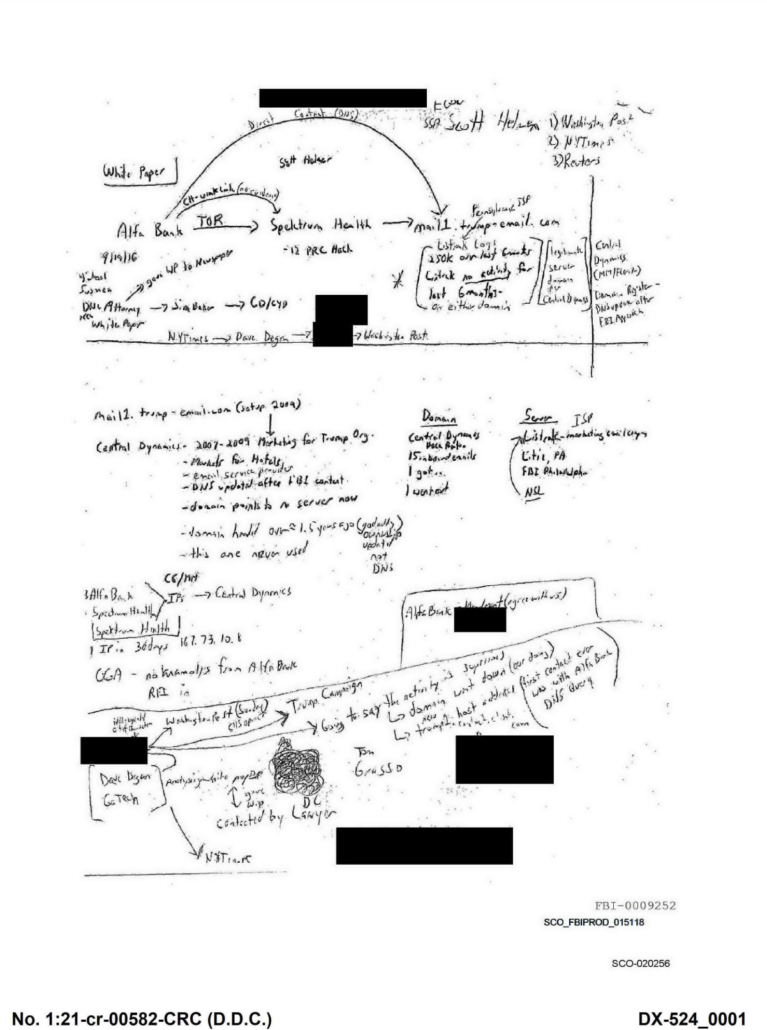 Direct Contact (DNS)
SSA Scott Hellman 1) Washington Post
2) NYTimes
3) Reuters
White Paper
Scott Hellman
Alfa Bank TOR Spektrum Health mail1.trump-email.com
Pennsylvania ISP
- 12 PRC Hack
9/19/16
Listrak Logs
250K over last 6 months
Listrak no activity for
last 6 months-
on either domain
legitimate
server
domain
for
Central Dynamics
Central
Dynamics
Domain Register -
DNS update after
FBI
Michael
Sussman
gave WP to Newspaper
DNC Attorney Jim Baker CD/CYD
White Paper
NYTimes Dave Dagon Washington Post
mail1.trump-email.com (setup 2009)
Central Dynamics - 2007-2009 Marketing for Trump Org.
- Markets for Hotels
- email service provider
- DNS updated after FBI contact
- domain points to no server now
- domain handed over ≈ 1.5 years ago (godaddy)
ownership
updated
not
DNS
- this one never used
Domain
Central Dynamics
Boca Raton
15 inbound emails
1 got in
1 went out
Server ISP
Listrak - marketing email
Lititz, PA
FBI Philadelphia
NSL
3 Alfa Bank
Spectrum Health
IPs Central Dynamics
Spektrum Health
1 IP in 30 days 167.73.10.8
GGA - no analysis from Alfa Bank
RFI in
Alfa Bank - Mandiant (agree with us)
Washington Post (Sunday)
Trump Campaign
Going to say the activity is suspicious
domain went down (our doing)
new
trump1. host added (first contact ever
was with Alfa Bank
DNS Query
Dave Dagon
GaTech
Analysis white paper
gave
W.P
DC
contacted by Lawyer
Tom
Grasso
NYTimes
FBI-0009252
SCO_FBIPROD_015118
SCO-020256
No. 1:21-cr-00582-CRC (D.D.C.) DX-524_0001